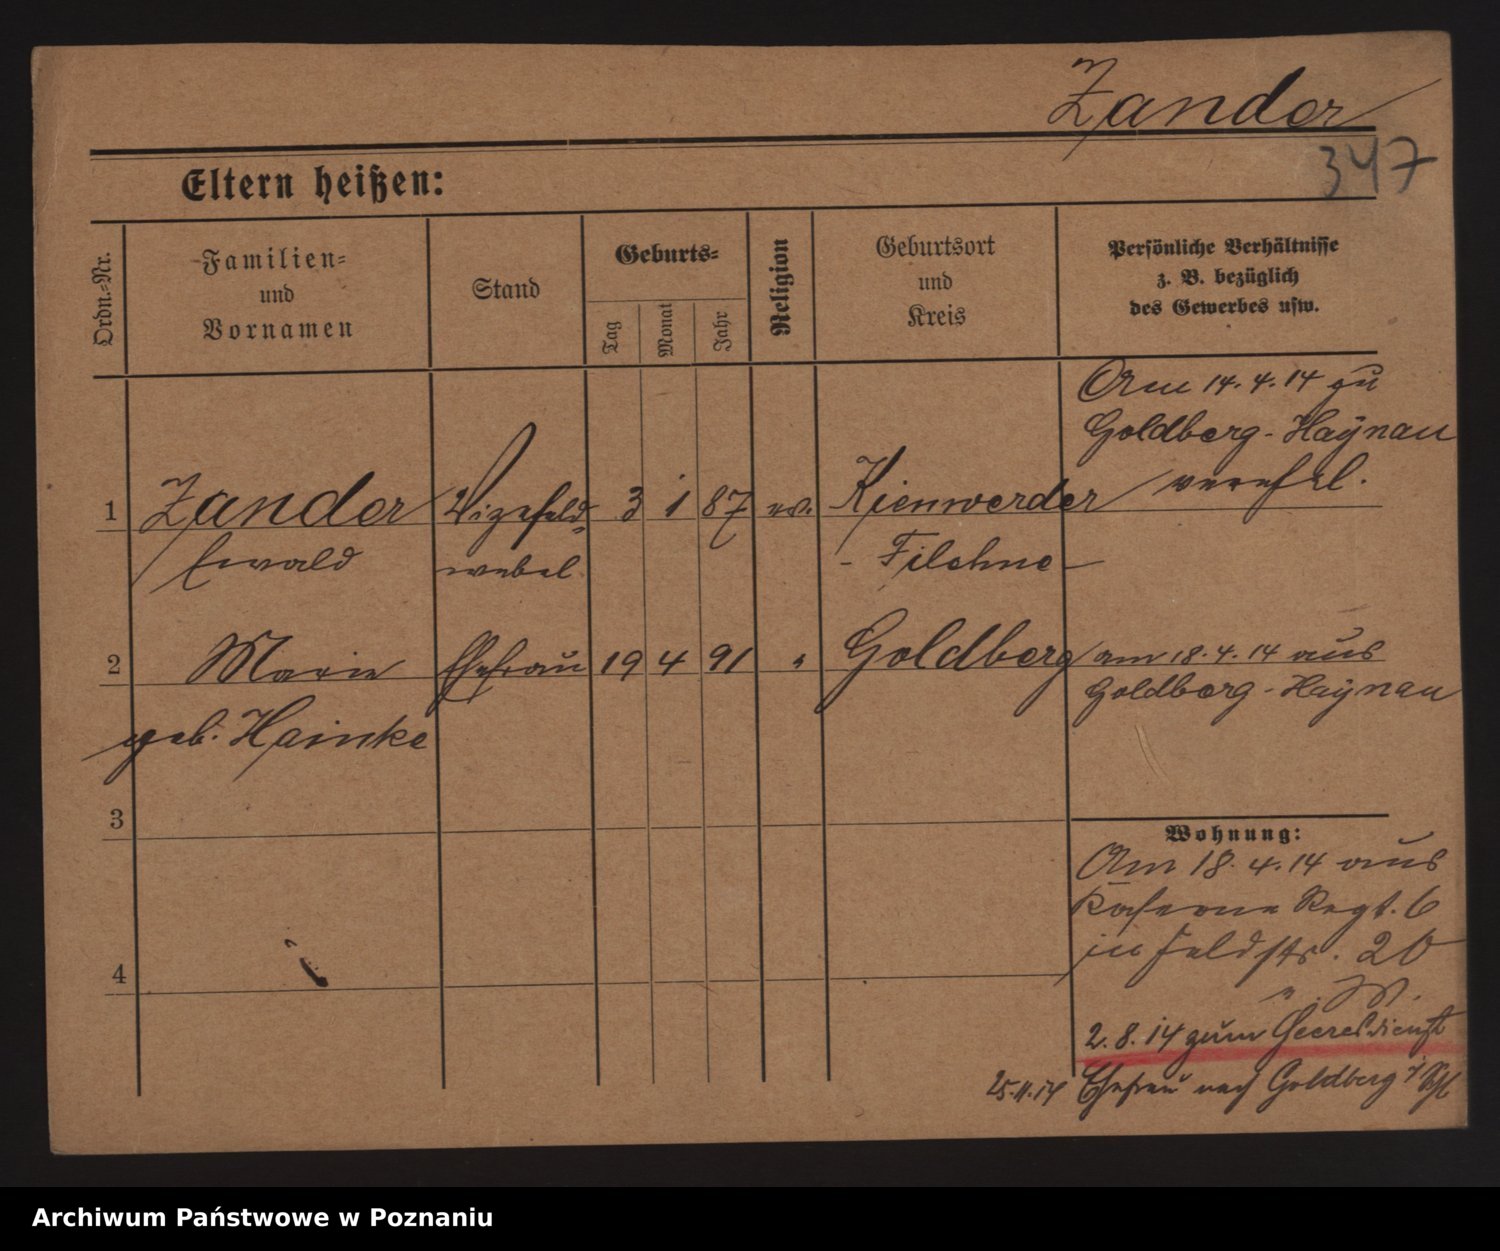 Zander
347
Eltern heißen:
Ordn.-Nr.
Familien-
und
Vornamen
Stand
Geburts-
Tag
Monat
Jahr
Religion
Geburtsort
und
Kreis
Persönliche Verhältnisse
z. B. bezüglich
des Gewerbes usw.
Am 14.4.14 zu
Goldberg-Haynau
verehel.
1 Zander Vizefeld- 3 1 87 ev. Kienwerder
Ewald webel - Filehne -
2 Marie Ehefrau 19 4 91 " Goldberg am 18.4.14 aus
Goldberg-Haynau
geb. Hainke
3
Wohnung:
Am 18.4.14 aus
Kaserne Regt. 6
in Feldstr. 20
4
2.8.14 zum Heeresdienst
25.11.14 Ehefrau nach Goldberg i/Schl
Archiwum Państwowe w Poznaniu